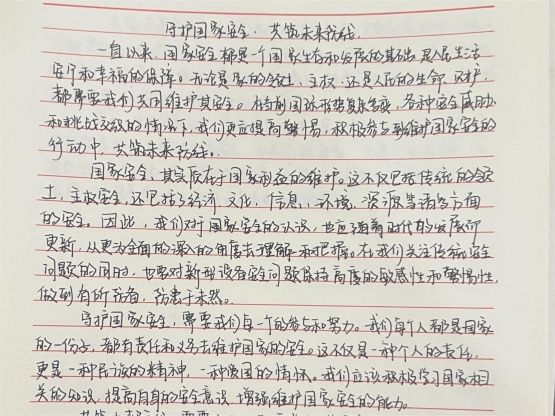 守护国家安全·共筑未来防线
一自以来,国家安全都是一个国家生存和发展的基础,是人民生活
安宁和幸福的保障。无论是国家的领土、主权,还是人民的生命、财产,
都需要我们共同维护其安全。在当前国际形势复杂多变,各种安全威胁
和挑战交织的情况下,我们更应提高警惕,积极参与到维护国家安全的
行动中,共筑未来防线。
国家安全,其实质在于国家利益的维护。这不仅包括传统的领
土,主权安全,还包括了经济,文化,信息,环境,资源等诸多方面
的安全。因此,我们对于国家安全的认识,也应随着时代的发展而
更新,从更为全面的深入的角度去理解和把握。在我们关注传统安全
问题的同时,也要对新型设有安全问题保持高度的敏感性和警惕性,
做到有所防备,防患于未然。
守护国家安全,需要我们每一个的参与和努力。我们每个人都是国家
的一份子,都有责任和义务去维护国家的安全。这不仅是一种个人的责任,
更是一种民族的精神,一种爱国的情怀。我们应该积极学习国家相
关的知识,提高自身的安全意识,增强维护国家安全的能力。